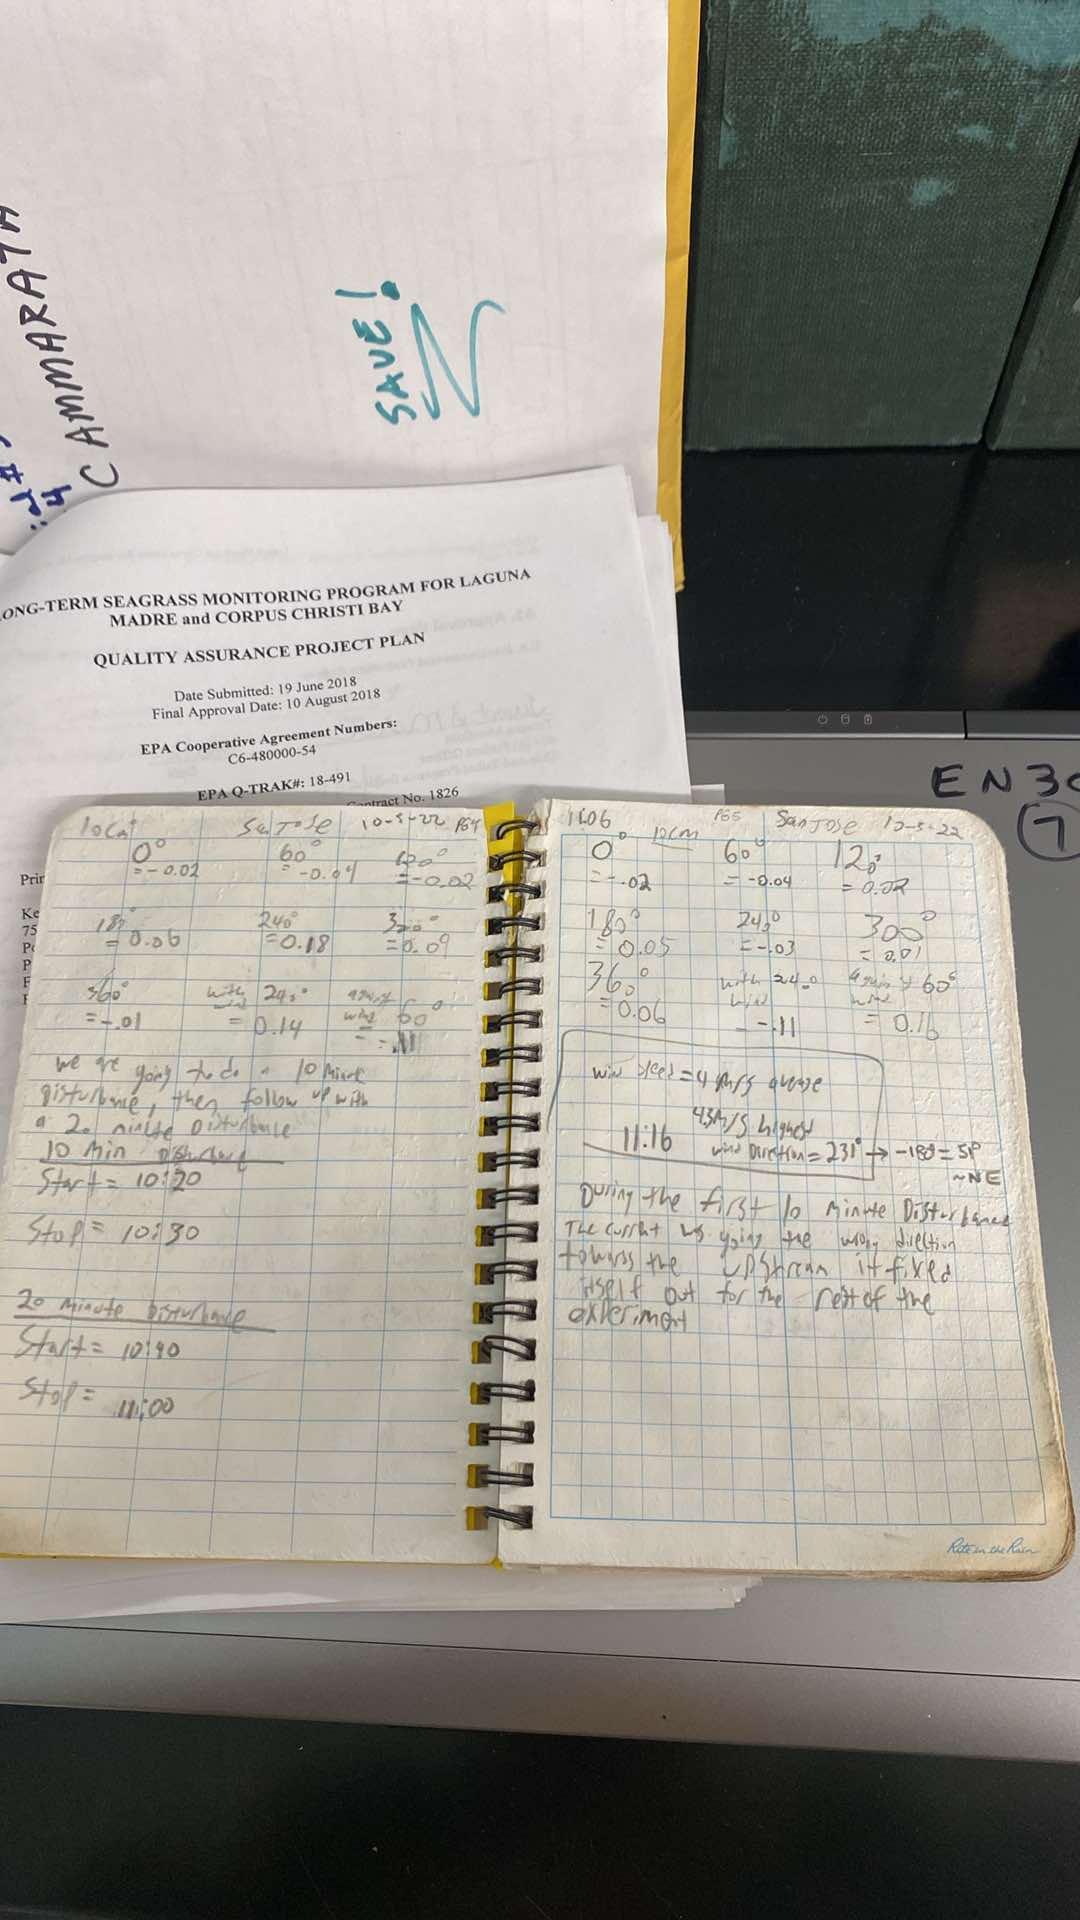 CAMMARATA
SAVE!
LONG-TERM SEAGRASS MONITORING PROGRAM FOR LAGUNA
MADRE and CORPUS CHRISTI BAY
QUALITY ASSURANCE PROJECT PLAN
Date Submitted: 19 June 2018
Final Approval Date: 10 August 2018
EPA Cooperative Agreement Numbers:
C6-480000-54
EPA Q-TRAK#: 18-491
Contract No. 1826
Prin
Ke
75
EN30
7
10cm San Jose 10-5-22 PG4
0° 60° 120°
= -0.02 = -0.04 = -0.02
180° 240° 320°
= 0.06 = 0.18 = 0.09
360° with wind 240° against wind 60°
= -.01 = 0.14 = -.11
we are going to do a 10 minute
disturbance, then follow up with
a 20 minute Disturbance
10 Min Disturbance
Start = 10:20
Stop = 10:30
20 minute Disturbance
Start = 10:40
Stop = 11:00
11:06 10cm PG5 San Jose 10-5-22
0° 60° 120°
= -.02 = -0.04 = 0.02
180° 240° 300°
= 0.05 = -.03 = 0.01
360° with wind 240° against wind 60°
= 0.06 = -.11 = 0.16
wind speed = 4 m/s average
4.3 m/s highest
11:16 wind Direction = 231° → -180 = 51°
~NE
During the first 10 minute Disturbance
The current was going the wrong direction
towards the upstream it fixed
itself out for the rest of the
experiment
Rite in the Rain